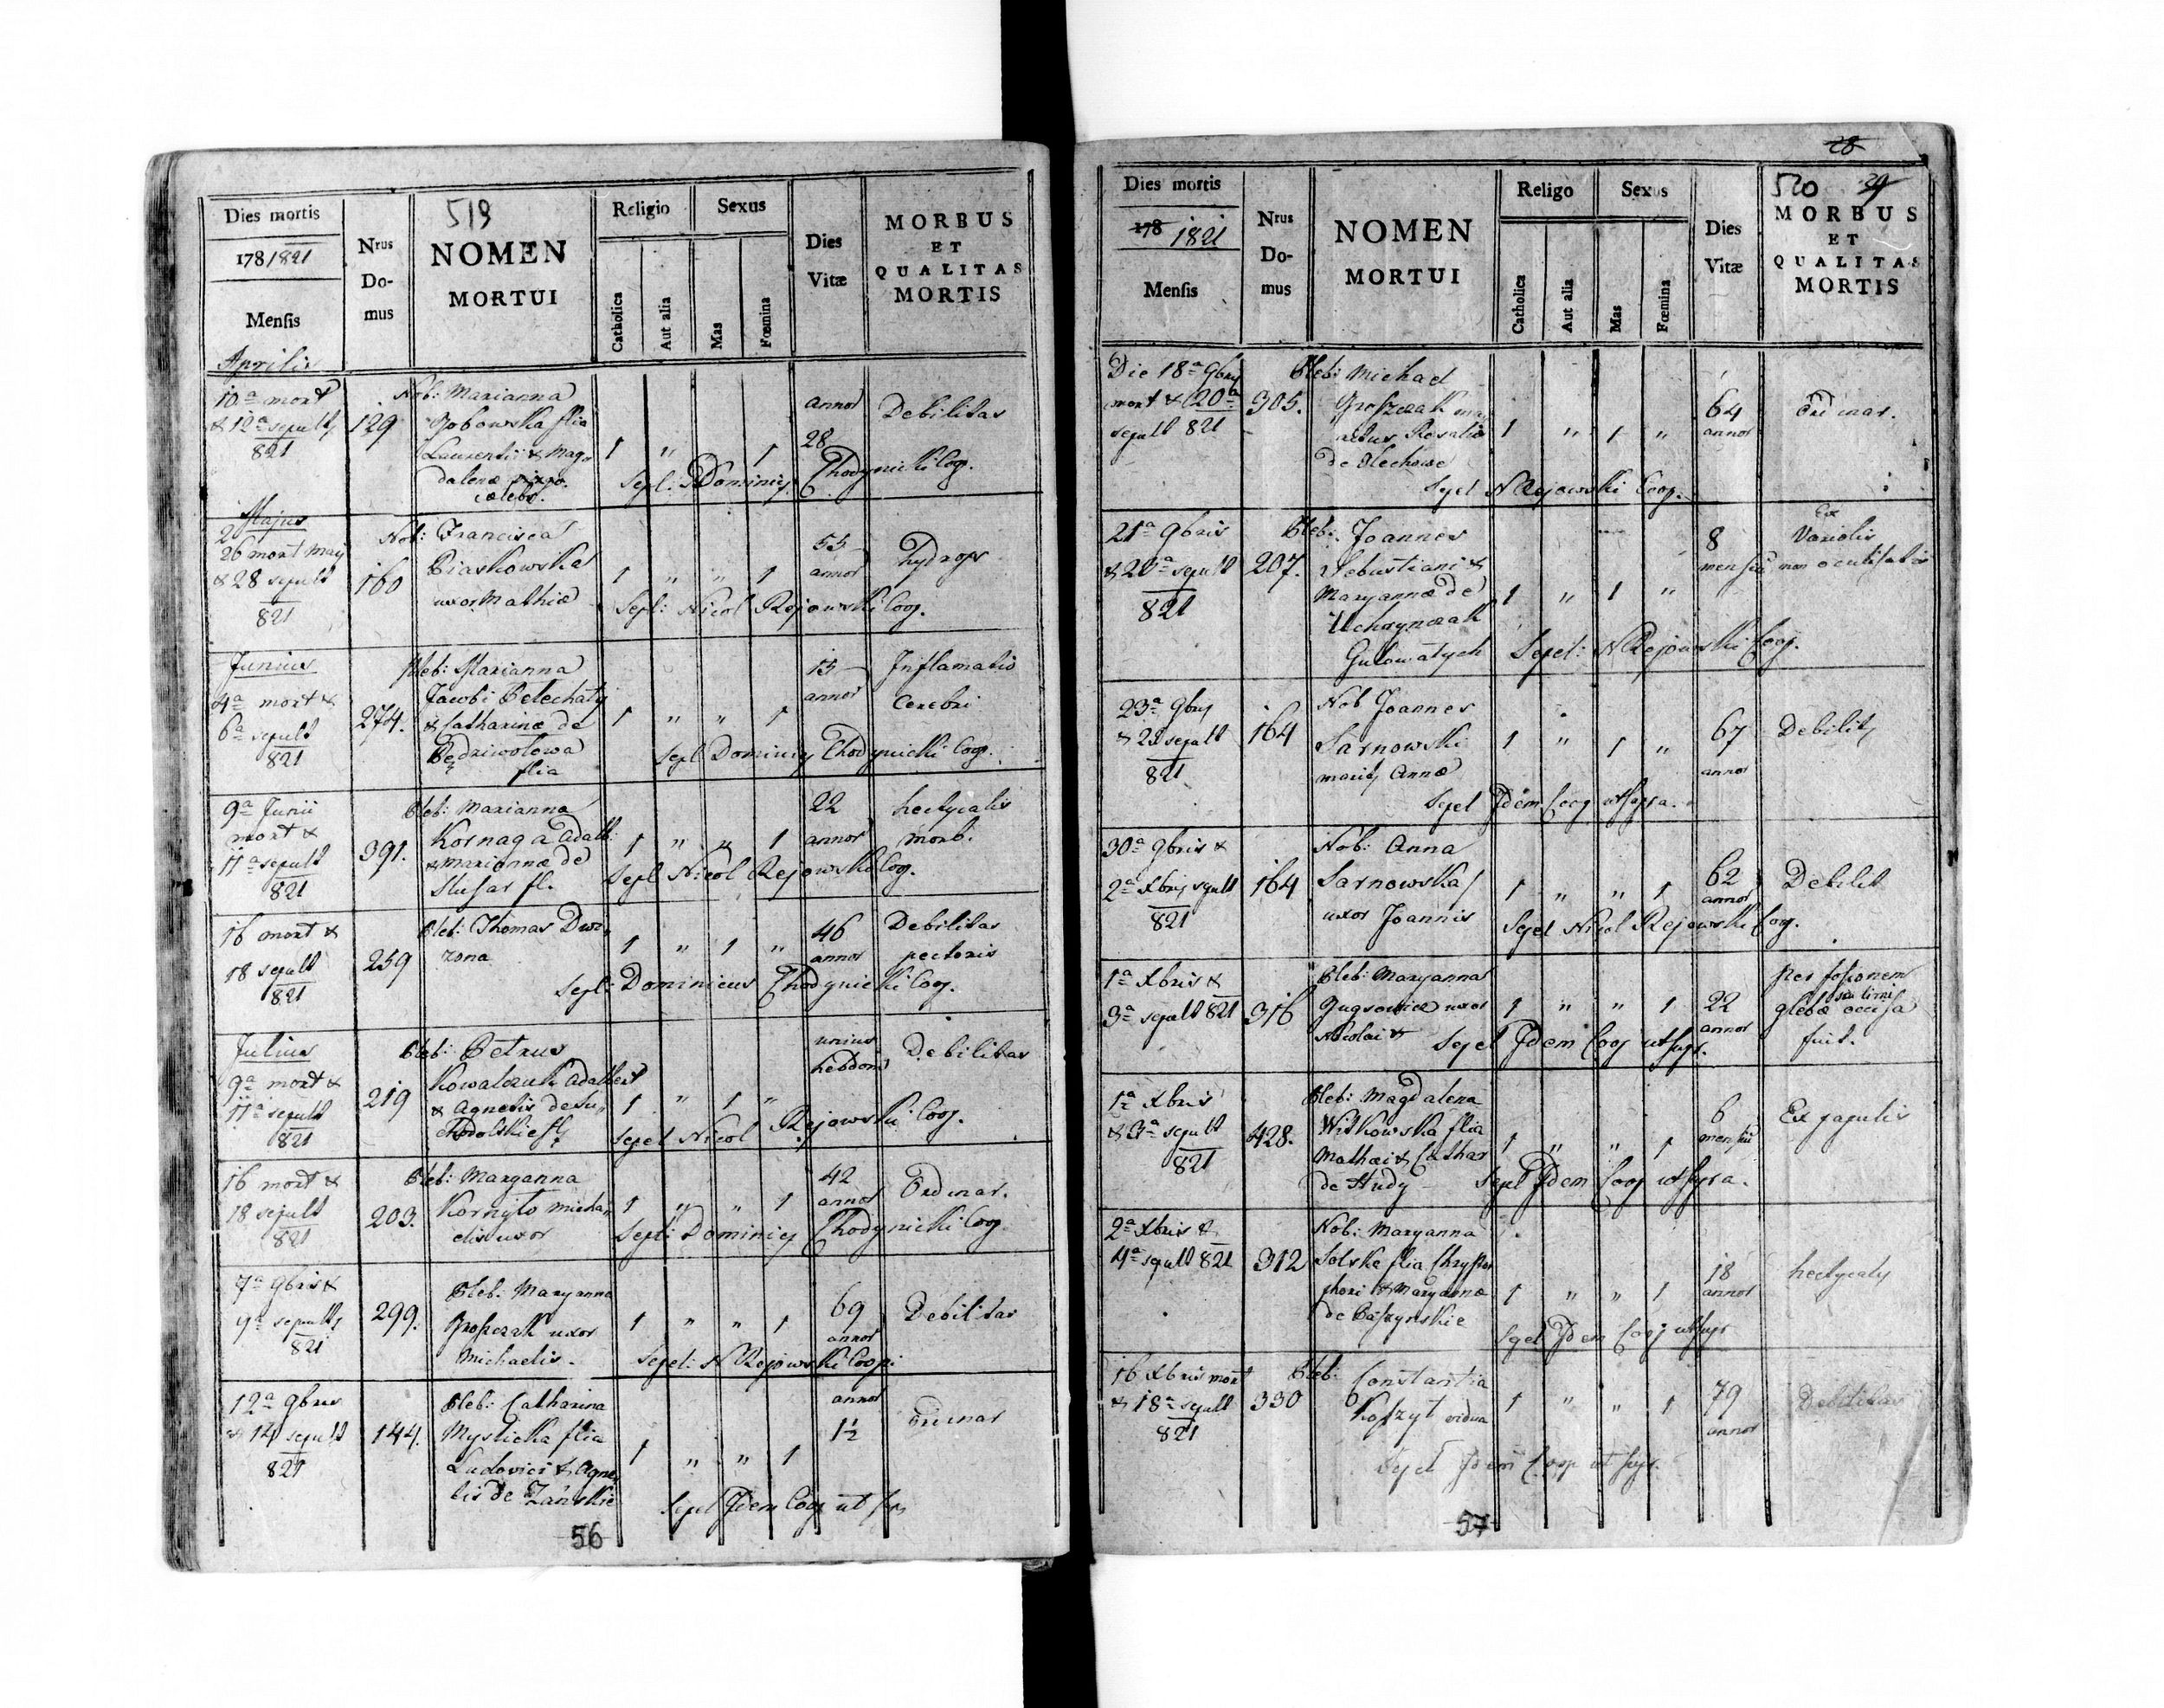 519
Dies mortis
178 1821
Mensis
Nrus Do-mus
NOMEN
MORTUI
Religio
Catholica
Aut alia
Sexus
Mas
Fœmina
Dies Vitæ
MORBUS
ET
QUALITAS
MORTIS
Aprilis
10a mort
& 12a sepult,
821
129
Nob: Marianna
flia
Laurentii & Mag
dalenæ
1 " 1
annor
28
Debilitas
Sepl: Dominicy Chodynicki Coop.
Majus
26 mort Maij
& 28 sepult
821
160
Nob: Francisca
Piaskowska
uxor Mathiæ
1 " " 1
55
annor
hydrops
Sepl: Nicol Rejowski Coop.
Junius
4a mort &
6a sepult
821
274.
Pleb: Marianna
Jacobi Pelechaty
& Catharinæ de
flia
1 " " 1
15
annor
Inflamatio
Cerebri
Sepl Dominicy Chodynicki Coop.
9a Junii
mort &
11a sepult
821
391.
Pleb: Marianna
Kornaga Adalb:
& Mariannæ de
Slusar fl.
1 " " 1
22
annor
hectycalis
morb.
Sepl Nicol Rejowski Coop.
16 mort &
18 sepult
821
259
Pleb: Thomas Dwo
rona
1 " 1 "
46
annor
Debilitas
pectoris
Sepl: Dominicus Chodynicki Coop.
Julius
9a mort &
11a sepult
821
219
Pleb: Petrus
Kowalczuk Adalbert
& Agnetis de Su
chodolskie
1 " 1 "
unius
hebdom
Debilitas
Sepel Nicol Rejowski Coop.
16 mort &
18 sepult
821
203.
Pleb: Maryanna
Kornyto Micha
elis uxor
1 " " 1
42
annor
Ordinar.
Sepl: Dominicy Chodynicki Coop.
7a 9bris &
9a sepult,
821
299.
Pleb: Maryanna
uxor
Michaelis.
1 " " 1
69
annor
Debilitas
Sepel: N Rejowski Coop:
12a 9bris
& 14 sepult
821
144.
Pleb: Catharina
Myslicka flia
Ludovici & Agne
tis de Zanskie
1 " " 1
annor
1½
Ordinar
Sepel Idem Coop ut
56
28
520 29
Dies mortis
178 1821
Mensis
Nrus Do-mus
NOMEN
MORTUI
Religo
Catholica
Aut alia
Sexus
Mas
Fœmina
Dies Vitæ
MORBUS
ET
QUALITAS
MORTIS
Die 18a 9brij
mort & 20a
sepult 821
305.
Pleb: Michael
de Olechowe
1 " 1 "
64
annor
Ordinar.
Sepel N Rejowski Coop.
21a 9bris
sepult
821
207.
Pleb: Joannes
Sebastiani &
Maryannæ de
Gulowatych
1 " 1 "
8
mensiu
Ex
Variolis
non
Sepel: N Rejowski Coop.
23a 9brij
sepult
821
164
Nob Joannes
Sarnowski
marity Annæ
1 " 1 "
67
annor
Debilit,
Sepel Idem Coop ut supra.
30a 9bris &
2a Xbrij sepult
821
164
Nob: Anna
Sarnowska
uxor Joannis
1 " " 1
62
annor
Debilit
Sepel Nicol Rejowski Coop.
1a Xbris &
3a sepult 821
316
Pleb: Maryanna
uxor
Nicolai
1 " " 1
22
annor
per
glebæ occisa
fuit.
Sepel Idem Coop ut supr.
1a Xbris
& 3a sepult
821
428.
Pleb: Magdalena
Witkowska flia
Mathæi & Cathar
de Hudy
1 " " 1
6
mensiu
Ex papulis
Sepel Idem Coop ut supra.
2a Xbris &
4a sepult 821
312
Nob: Maryanna
Solska flia Chrysto
phori & Maryannæ
de
1 " " 1
18
annor
hectycaly
Sepel Idem Coop ut supr
16 Xbris mort
& 18a sepult
821
330
Pleb: Constantia
Koszyt vidua
1 " " 1
79
annor
Debilitas
Sepel Idem Coop ut supr.
57